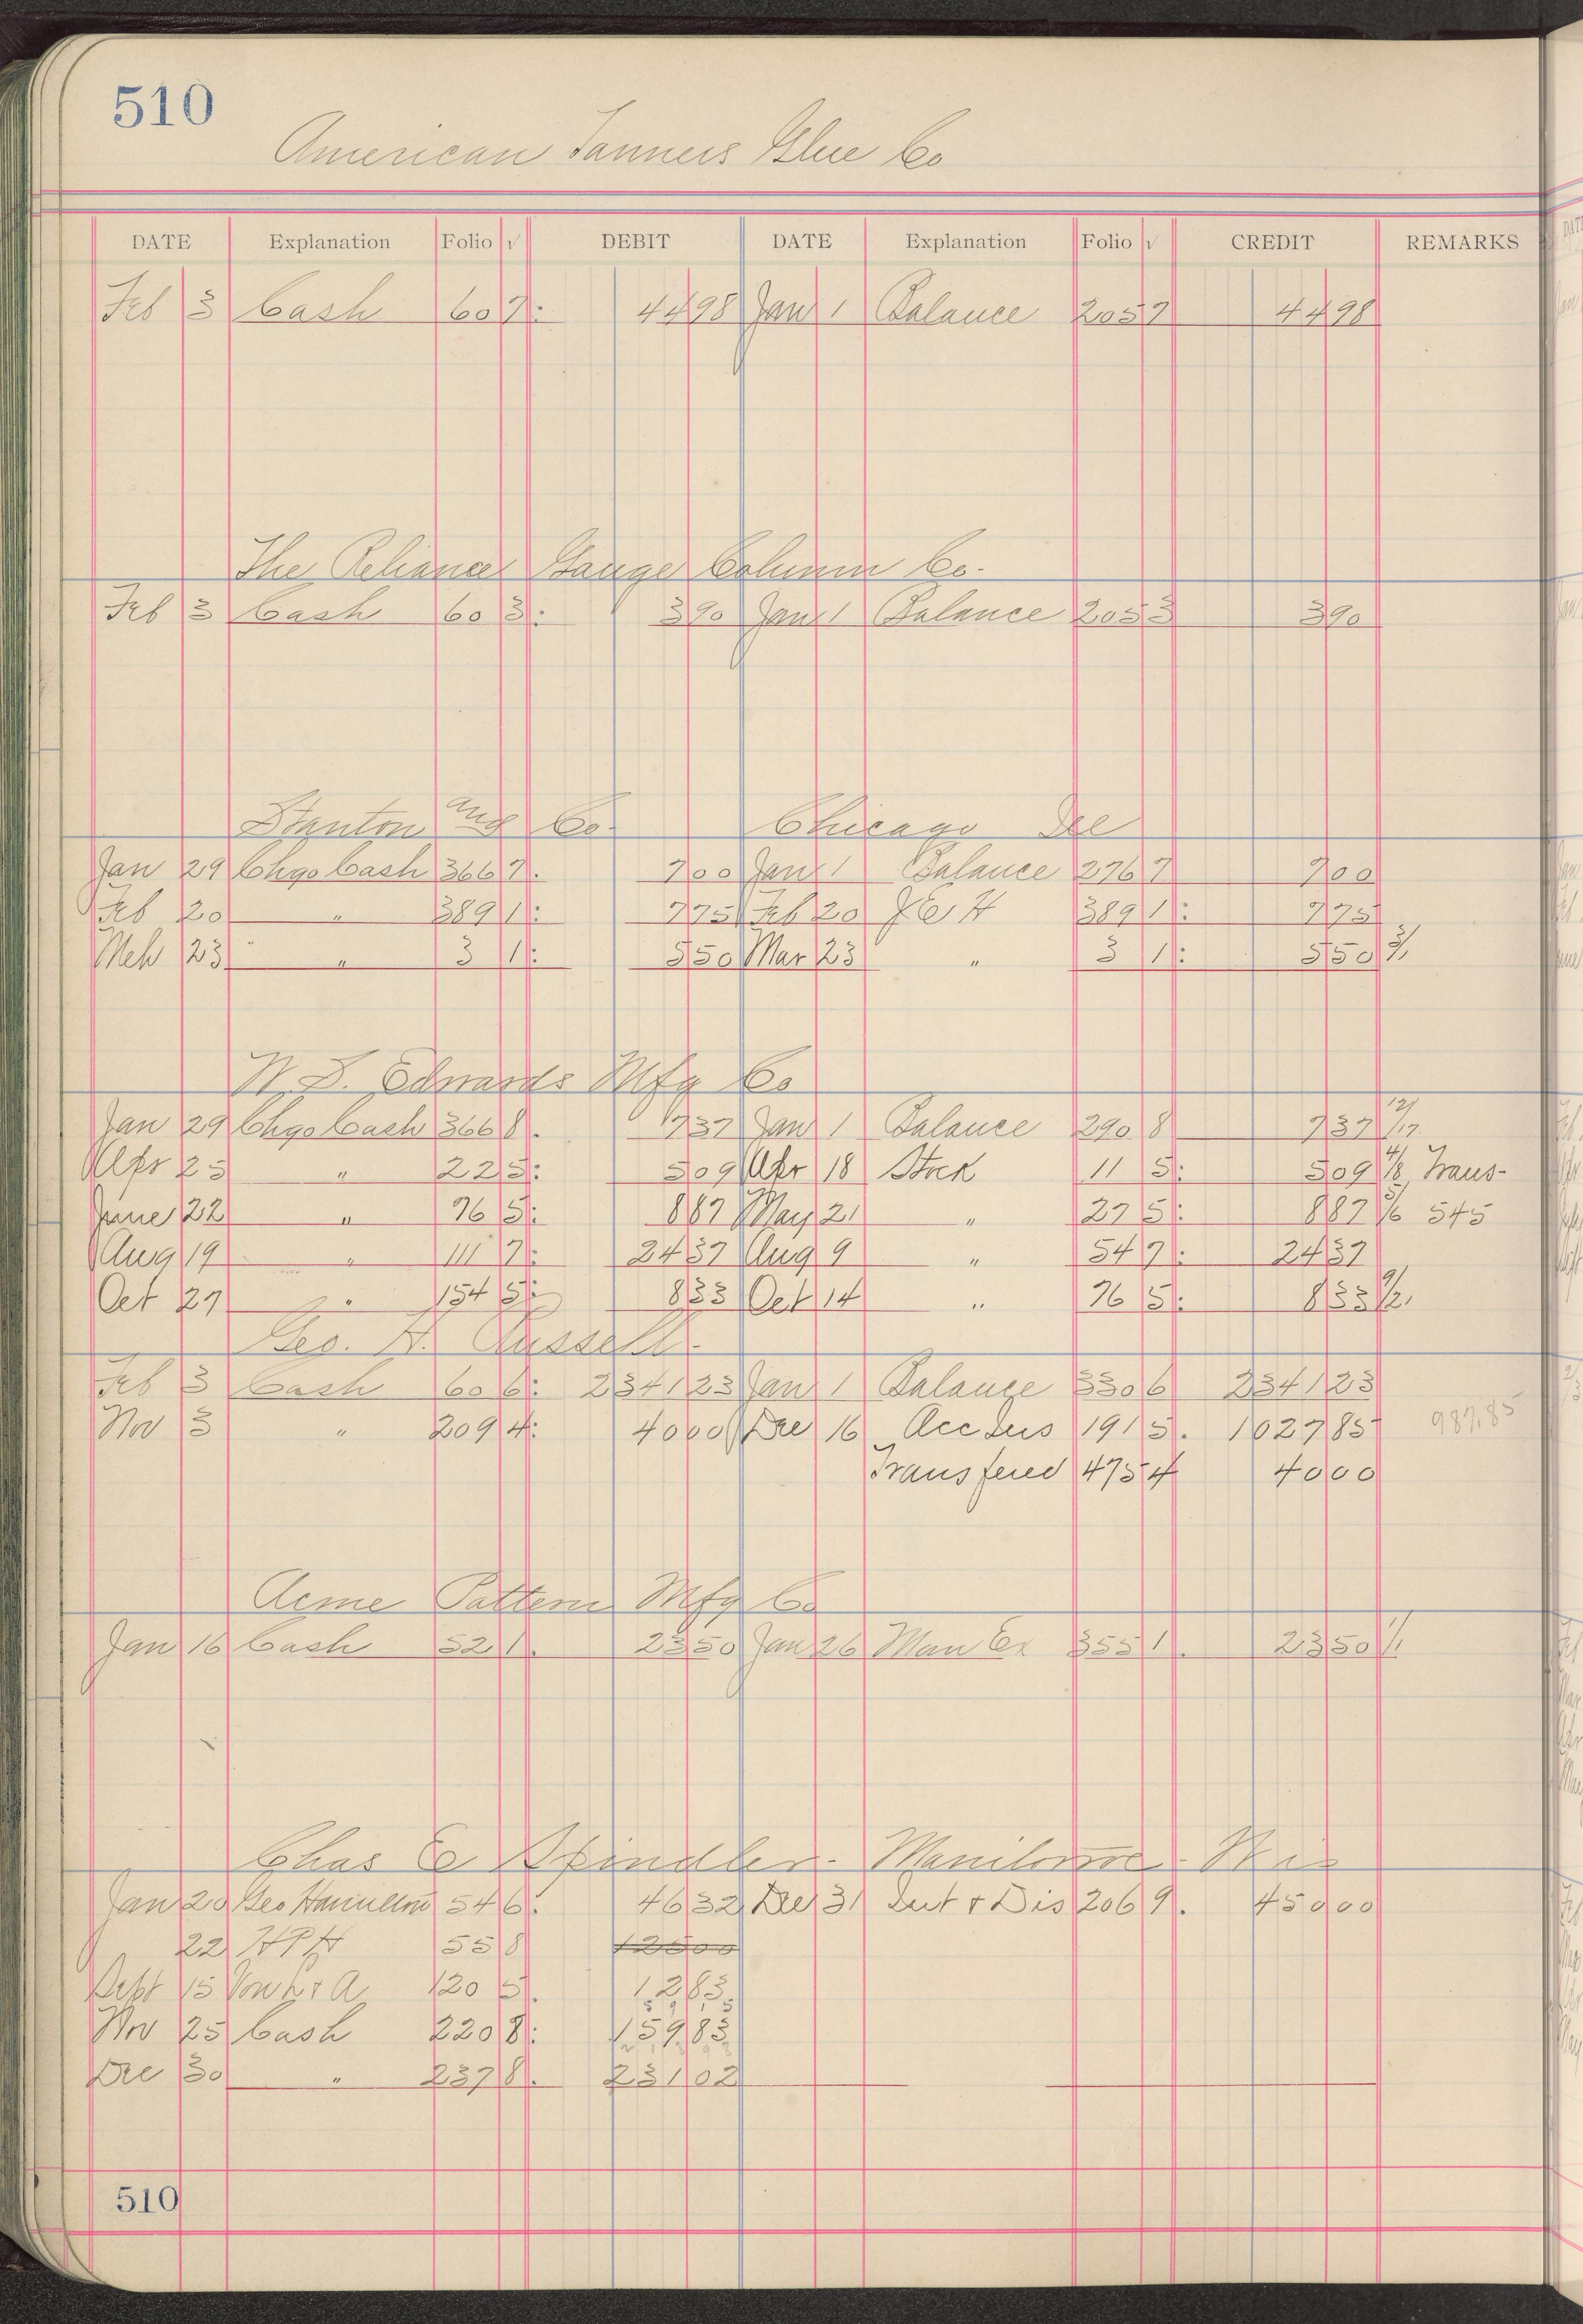 510
American Tanners Glue Co
DATE Explanation Folio √ DEBIT DATE Explanation Folio √ CREDIT REMARKS
Feb 3 Cash 60 7: 44 98 Jan 1 Balance 205 7 44 98
The Reliance Gauge Column Co.
Feb 3 Cash 60 3: 3 90 Jan 1 Balance 205 3 3 90
Stanton Mfg Co. Chicago Ill
Jan 29 Chgo Cash 366 7. 7 00 Jan 1 Balance 276 7 7 00
Feb 20 " 389 1: 7 75 Feb 20 J E H 389 1: 7 75
Mch 23 " 3 1: 5 50 Mar 23 " 3 1: 5 50 3/1
W. D. Edwards Mfg Co
Jan 29 Chgo Cash 366 8. 7 37 Jan 1 Balance 290 8 7 37 12/17
Apr 25 " 22 5: 5 09 Apr 18 Stock 11 5: 5 09 4/8 Trans-
June 22 " 76 5: 8 87 May 21 " 27 5: 8 87 5/6 545
Aug 19 " 111 7: 24 37 Aug 9 " 54 7: 24 37
Oct 27 " 154 5: 8 33 Oct 14 " 76 5: 8 33 9/2
Geo. H. Russell
Feb 3 Cash 60 6: 2341 23 Jan 1 Balance 330 6 2341 23
Nov 3 " 209 4: 40 00 Dec 16 Acc Sus 191 5. 1027 85 987.85
Transfered 475 4 40 00
Acme Pattern Mfg Co
Jan 16 Cash 52 1. 23 50 Jan 26 Man Ex 355 1. 23 50 1/1
Chas E Spindler - Manitowoc - Wis
Jan 20 Geo Hamilton 54 6: 46 32 Dec 31 Int & Dis 206 9. 450 00
22 H P H 55 8 125 00
Sept 15 120 5. 12 83
Nov 25 Cash 220 8: 159 83
Dec 30 " 237 8. 231 02
510